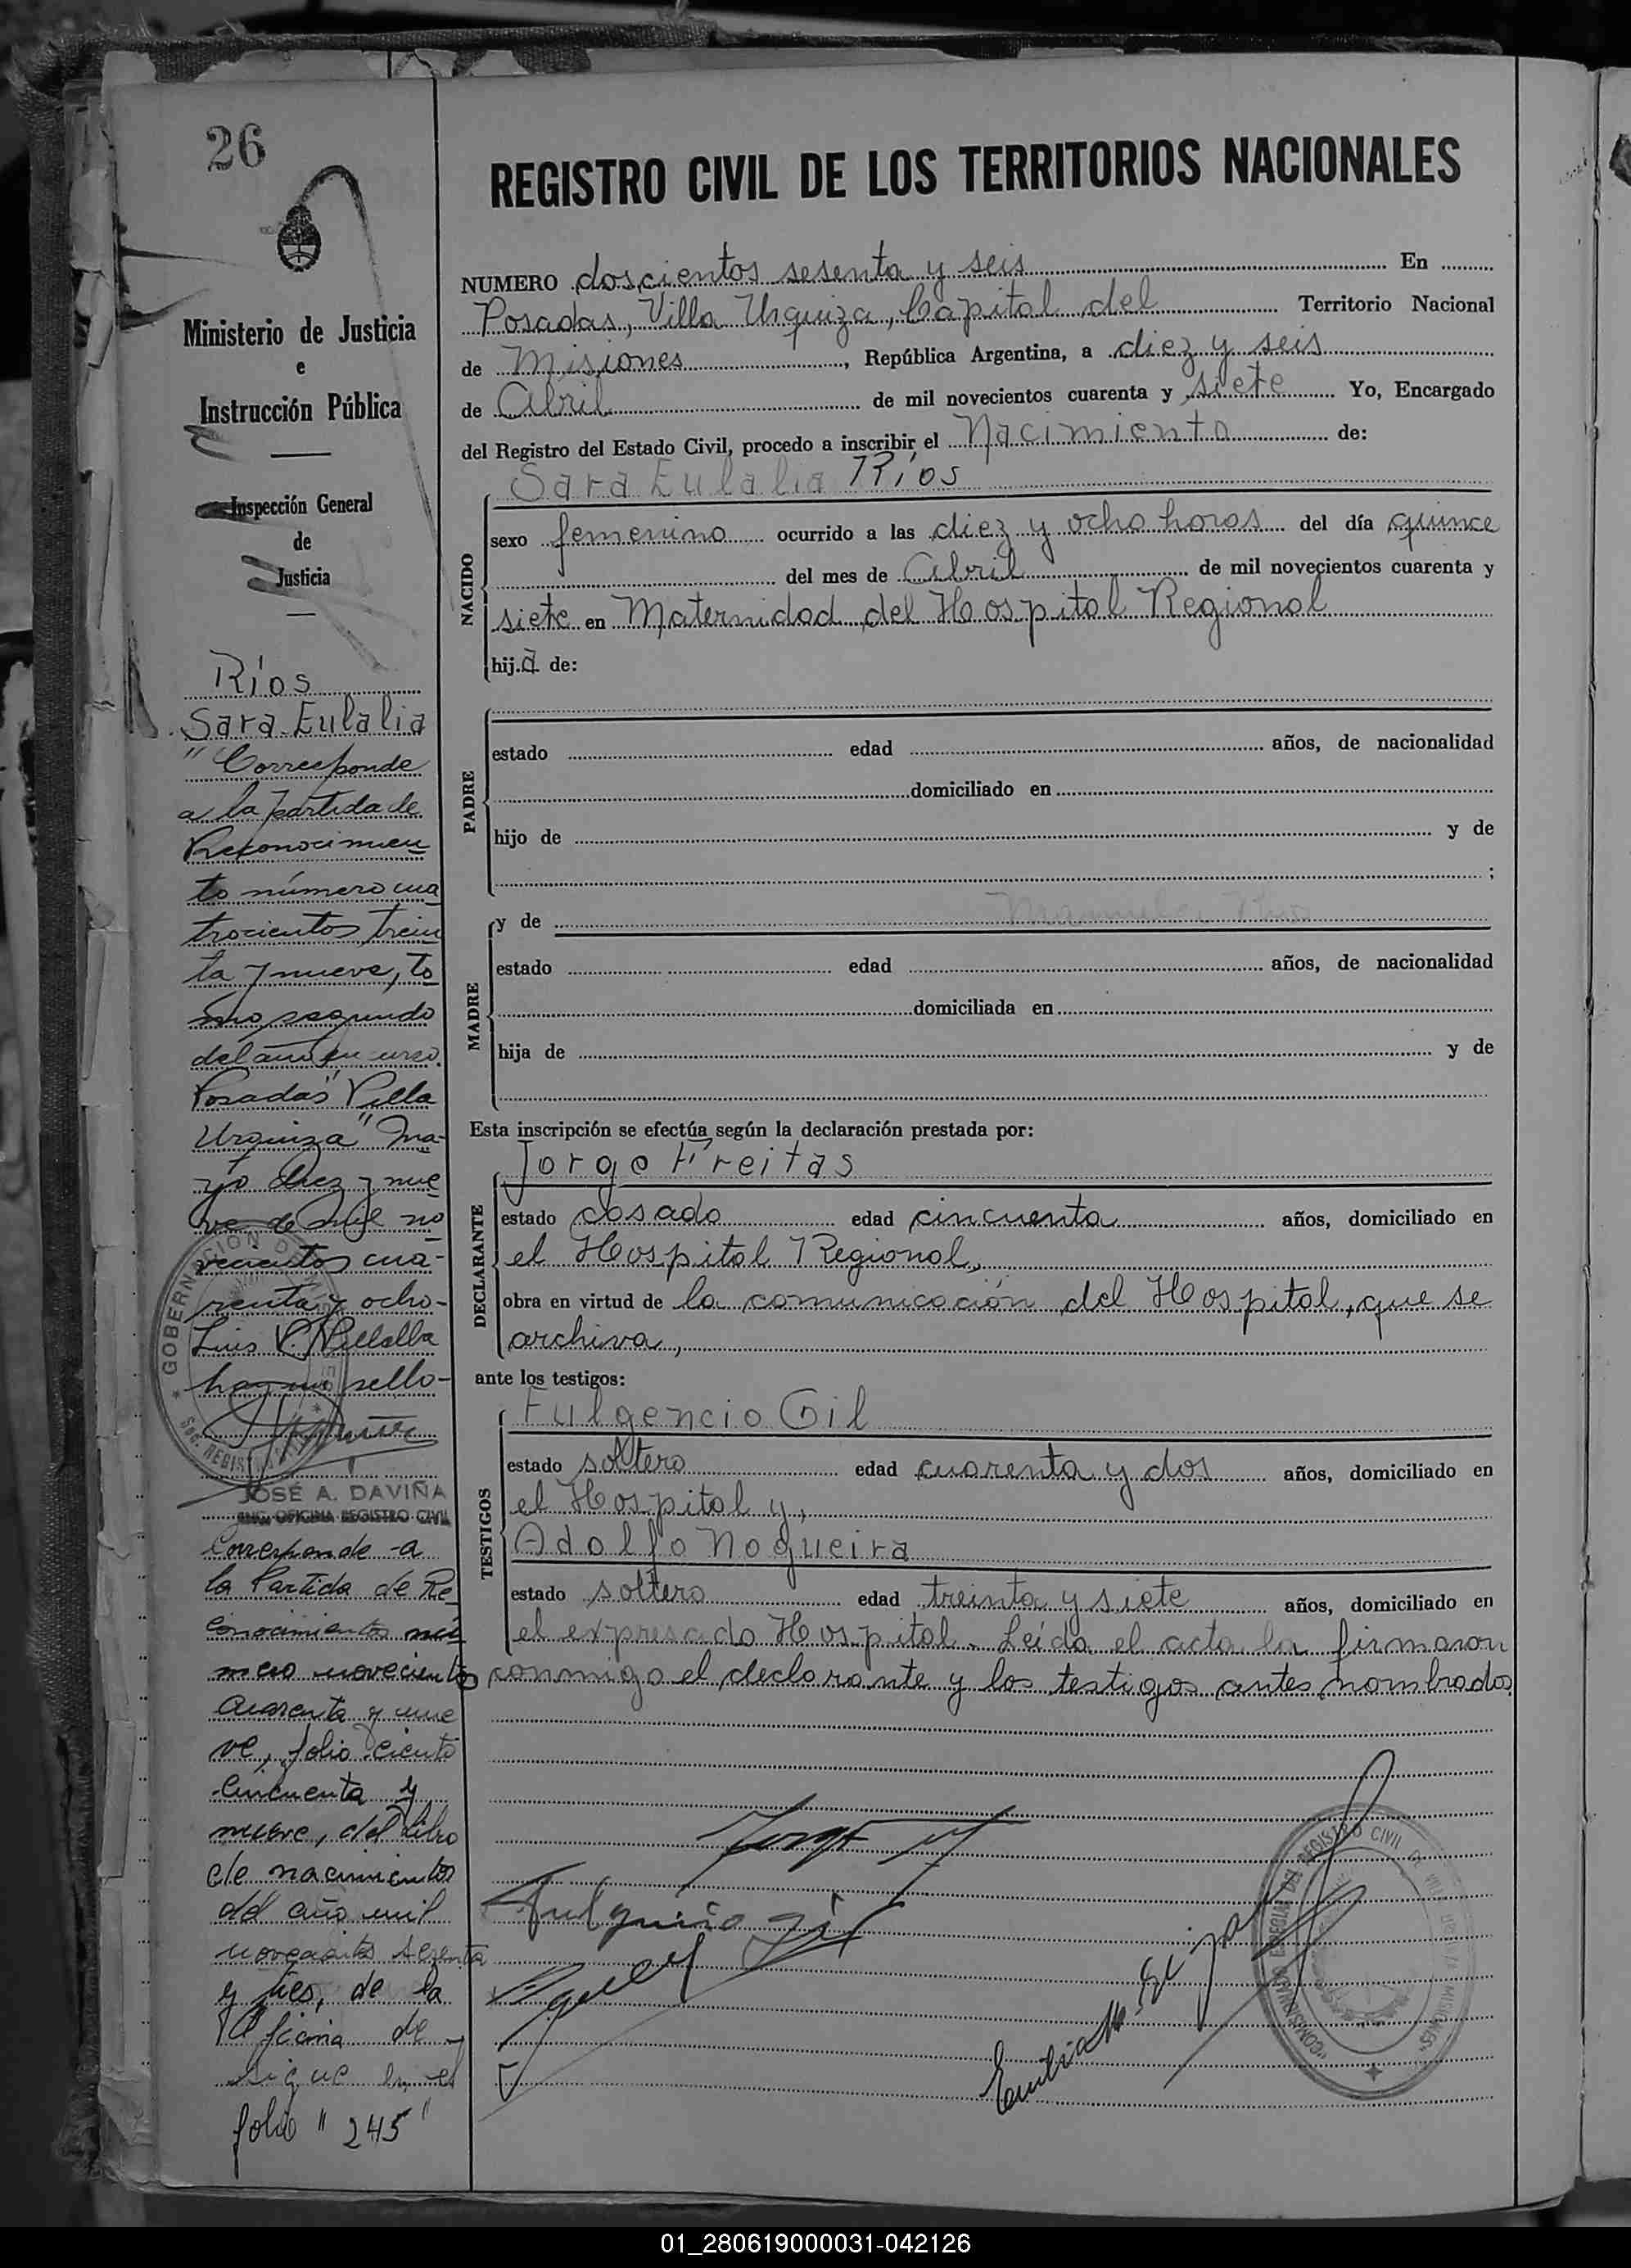 26
REGISTRO CIVIL DE LOS TERRITORIOS NACIONALES
Ministerio de Justicia
e
Instrucción Pública
Inspección General
de
Justicia
Ríos
Sara Eulalia
"Corresponde
a la partida de
Reconocimien
to número cua
trocientos trein
ta y nueve, to
mo segundo
del año en curso.
Posadas "Villa
Urquiza" Ma-
yo diez y nue
ve de mil no
vecientos cua-
renta y ocho-
Luis V. Villalba
hay un sello-
GOBERNACION DE MISIONES
JOSÉ A. DAVIÑA
ENC. OFICINA REGISTRO CIVIL
Corresponde a
la Partida de Re
conocimientos nú
mero novecientos
cuarenta y nue
ve, folio ciento
cincuenta y
nueve, del Libro
de nacimientos
del año mil
novecientos sesenta
y tres, de la
Oficina de
sigue en el
folio "245"
NUMERO doscientos sesenta y seis En
Posadas, Villa Urquiza, Capital del Territorio Nacional
de Misiones, República Argentina, a diez y seis
de Abril de mil novecientos cuarenta y siete Yo, Encargado
del Registro del Estado Civil, procedo a inscribir el Nacimiento de:
Sara Eulalia Ríos
NACIDO
sexo femenino ocurrido a las diez y ocho horas del día quince
del mes de Abril de mil novecientos cuarenta y
siete en Maternidad del Hospital Regional
hija de:
PADRE
estado edad años, de nacionalidad
domiciliado en
hijo de y de
;
MADRE
y de
estado edad años, de nacionalidad
domiciliada en
hija de y de
Esta inscripción se efectúa según la declaración prestada por:
Jorge Freitas
DECLARANTE
estado casado edad cincuenta años, domiciliado en
el Hospital Regional,
obra en virtud de la comunicación del Hospital, que se
archiva,
ante los testigos:
Fulgencio Gil
TESTIGOS
estado soltero edad cuarenta y dos años, domiciliado en
el Hospital y,
Adolfo Nogueira
estado soltero edad treinta y siete años, domiciliado en
el expresado Hospital. Leída el acta la firmaron
conmigo el declarante y los testigos antes nombrados
Fulgencio Gil
REGISTRO CIVIL
01_280619000031-042126